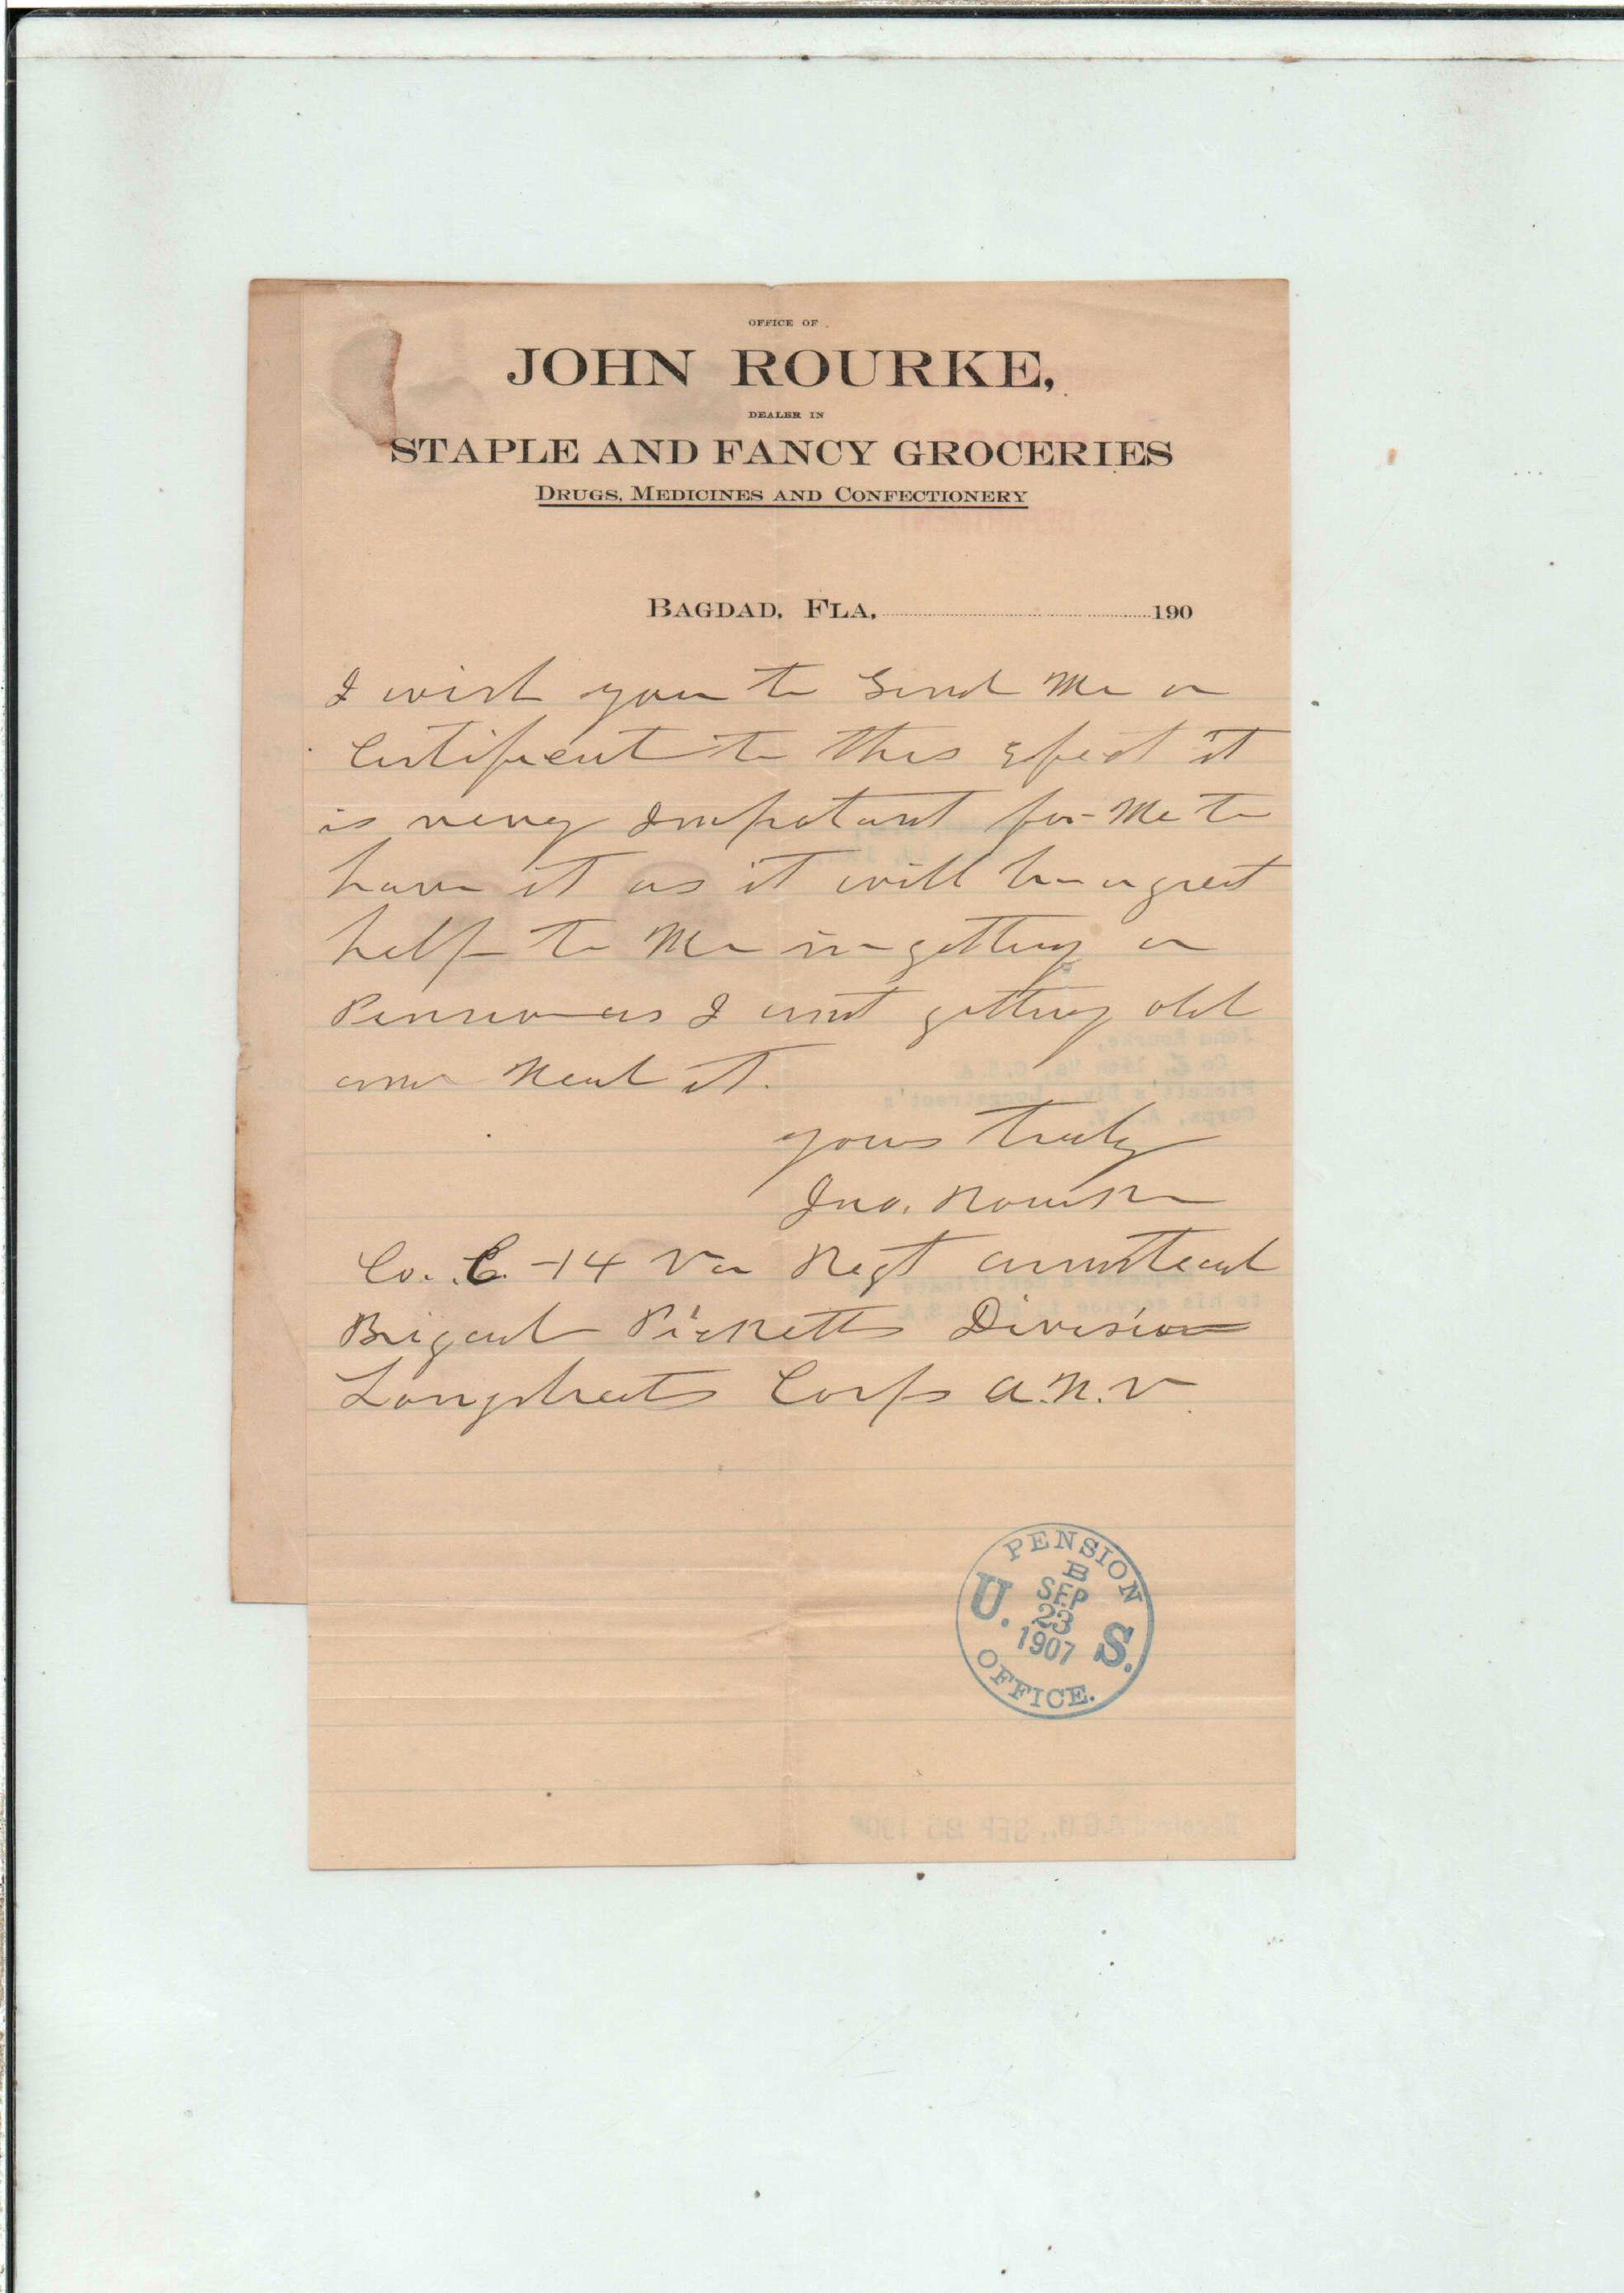 OFFICE OF
JOHN ROURKE,
DEALER IN
STAPLE AND FANCY GROCERIES
DRUGS, MEDICINES AND CONFECTIONERY
BAGDAD, FLA, 190
I wish you to Send Me a
Certificate to this Effect it
is very Important for Me to
have it as it will be a great
help to Me in getting a
Pension as I am getting old
and Need it.
yours truly
Jno. Rourke
Co. C. -14 Va Regt Armistead
Brigade Picketts Division
Longstreets Corps A.N.V
PENSION
B
SEP
23
1907
U. S.
OFFICE.